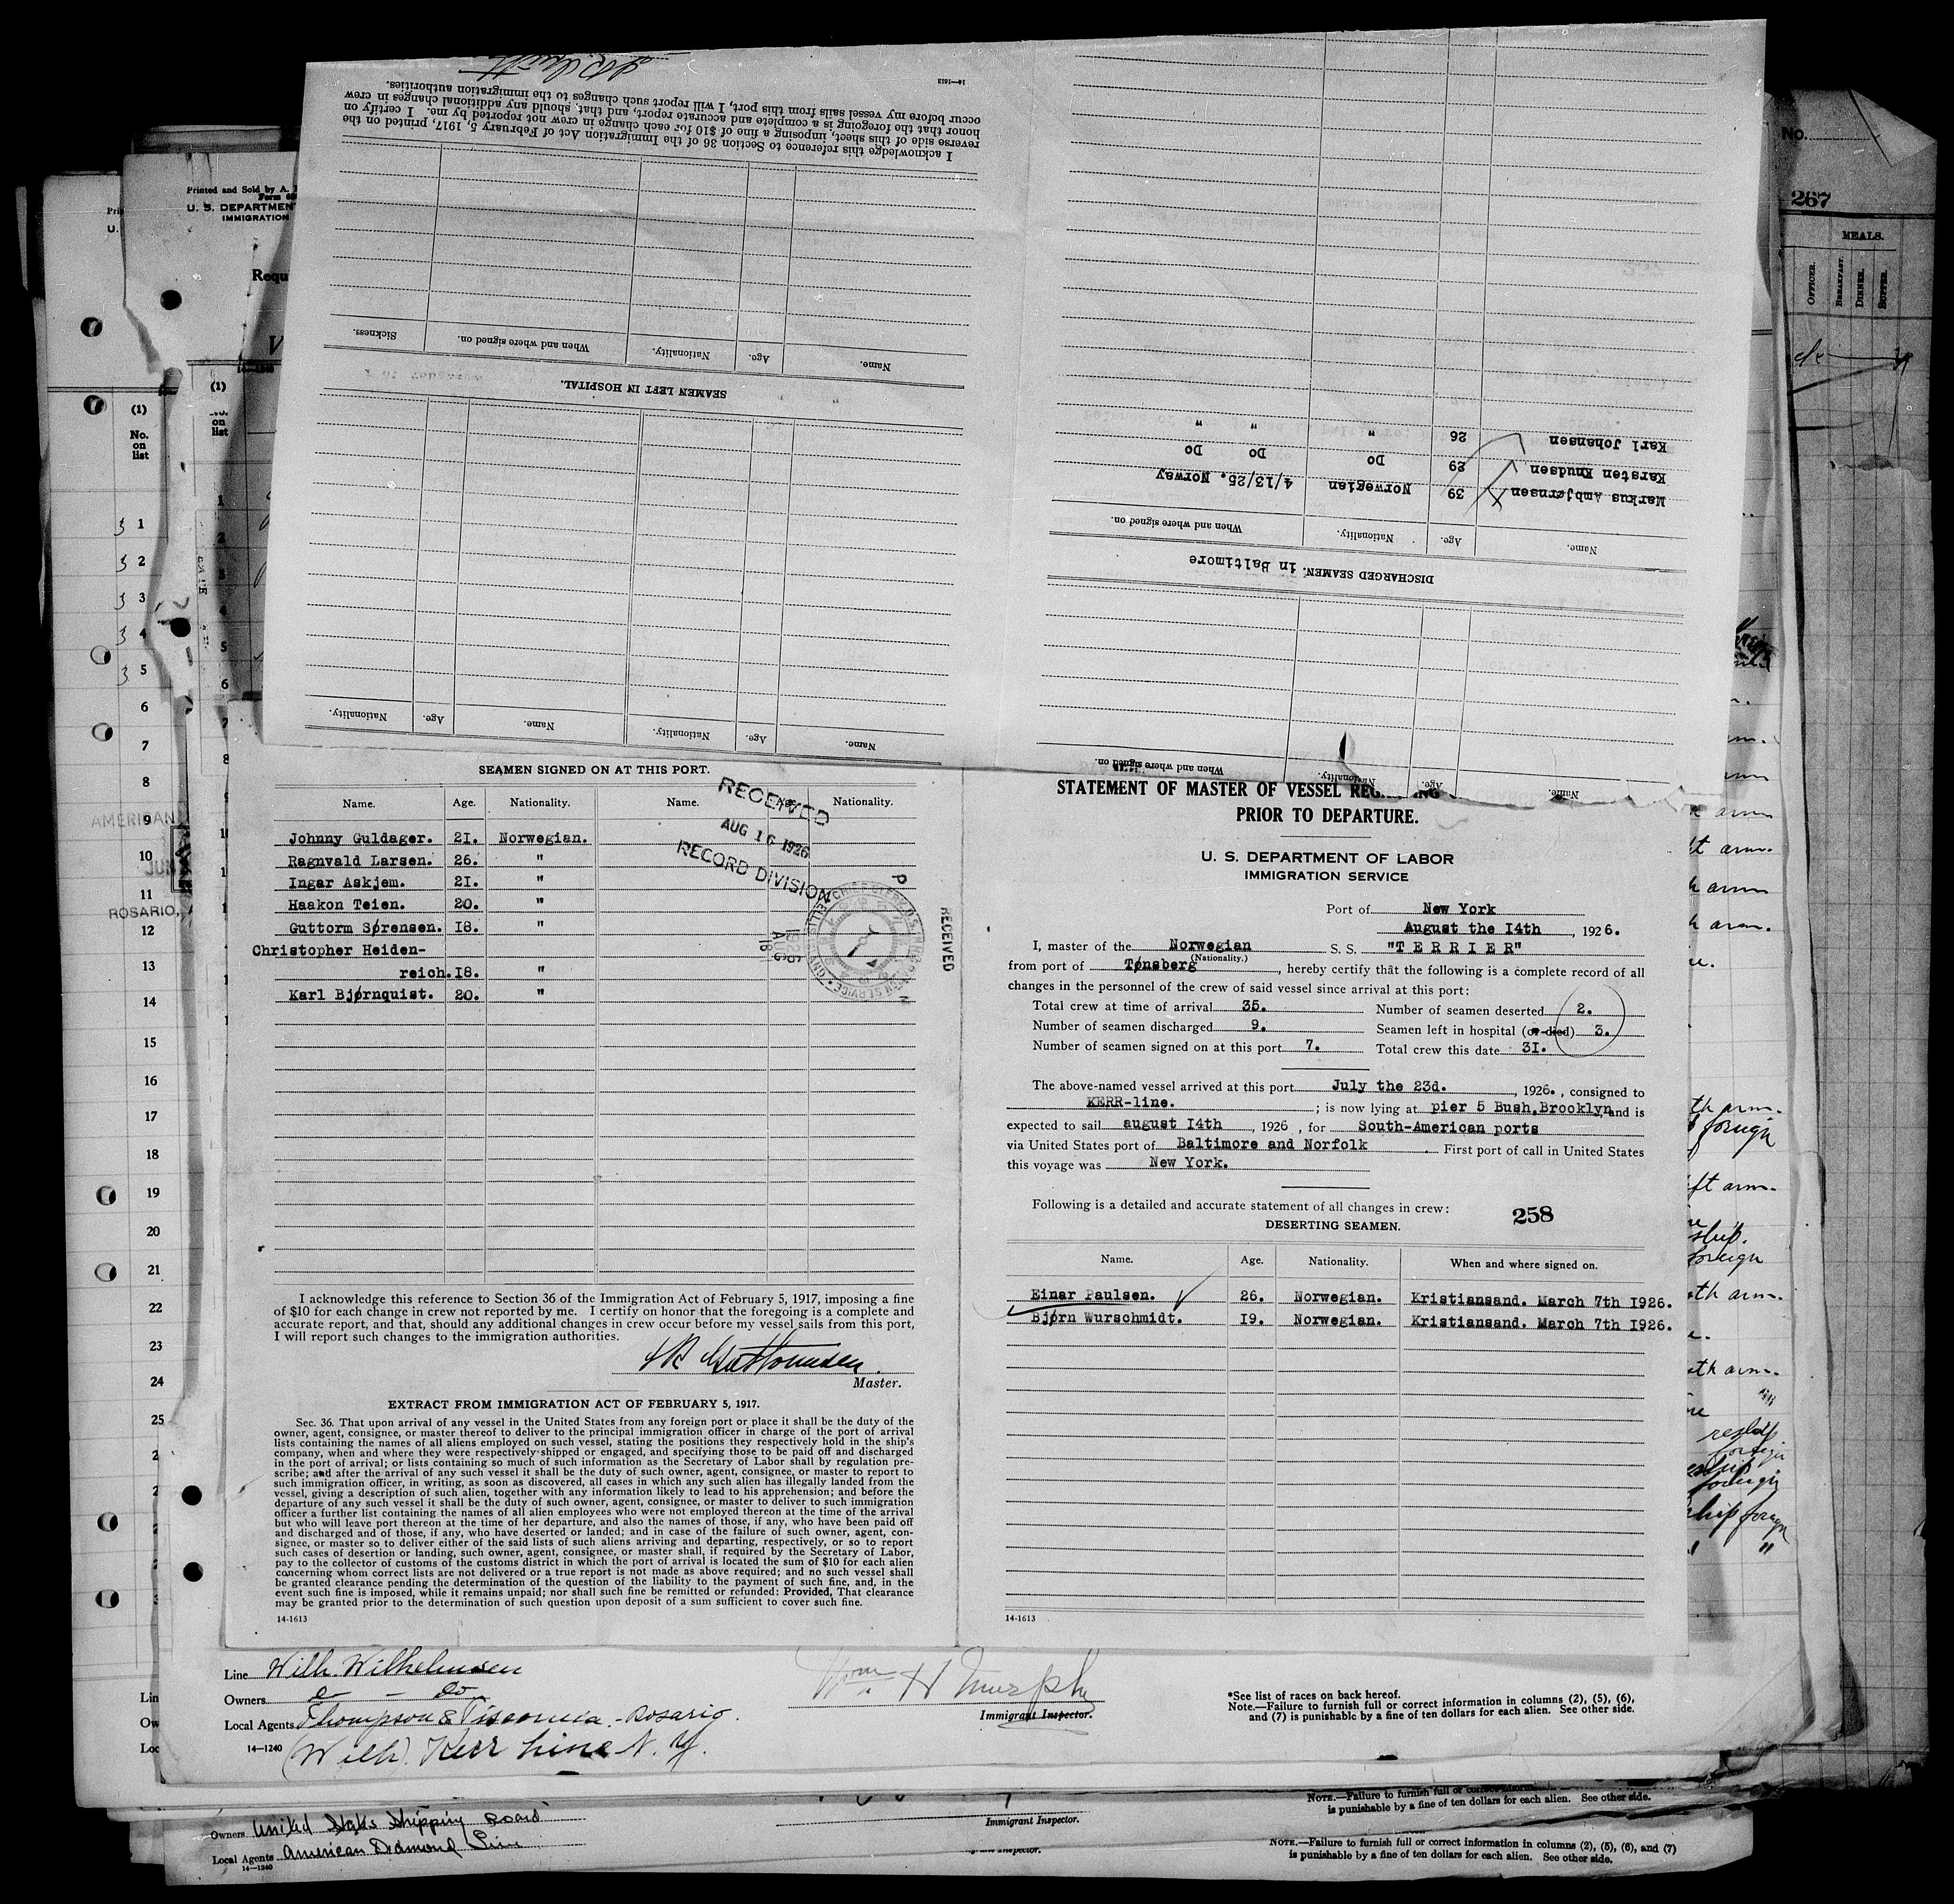 I acknowledge this reference to Section 36 of the Immigration Act of February 5, 1917, printed on the
reverse side of this sheet, imposing a fine of $10 for each change in crew not reported by me. I certify on
honor that the foregoing is a complete and accurate report, and that, should any additional changes in crew
occur before my vessel sails from this port, I will report such changes to the immigration authorities.
14-1613
Name. Age. Nationality. When and where signed on. Sickness.
SEAMEN LEFT IN HOSPITAL.
Name. Age. Nationality. Name. Age. Nationality.
Karl Johansen 26 " " "
Karsten Knudsen 29 Do Do Do
Markus Ambjørnsen 39 Norwegian 4/13/25. Norway
Name. Age. Nationality. When and where signed on.
DISCHARGED SEAMEN. in Baltimore
Name. Age. Nationality. When and where signed on.
No.
267
MEALS.
OFFICER. BREAKFAST. DINNER. SUPPER.
Printed and Sold by A.
U. S. DEPARTMEN
IMMIGRATION
Requ
(1)
No.
on
list
SEAMEN SIGNED ON AT THIS PORT.
Name. Age. Nationality. Name. Age. Nationality.
Johnny Guldager. 21. Norwegian.
Ragnvald Larsen. 26. "
Ingar Askjem. 21. "
Haakon Teien. 20. "
Guttorm Sørensen. 18. "
Christopher Heiden-
reich. 18. "
Karl Bjørnquist. 20. "
RECEIVED
AUG 16 1926
RECORD DIVISION
RECEIVED
1926
AUG
AMERICAN
JUN
ROSARIO,
I acknowledge this reference to Section 36 of the Immigration Act of February 5, 1917, imposing a fine
of $10 for each change in crew not reported by me. I certify on honor that the foregoing is a complete and
accurate report, and that, should any additional changes in crew occur before my vessel sails from this port,
I will report such changes to the immigration authorities.
Master.
EXTRACT FROM IMMIGRATION ACT OF FEBRUARY 5, 1917.
Sec. 36. That upon arrival of any vessel in the United States from any foreign port or place it shall be the duty of the
owner, agent, consignee, or master thereof to deliver to the principal immigration officer in charge of the port of arrival
lists containing the names of all aliens employed on such vessel, stating the positions they respectively hold in the ship's
company, when and where they were respectively shipped or engaged, and specifying those to be paid off and discharged
in the port of arrival; or lists containing so much of such information as the Secretary of Labor shall by regulation pre-
scribe; and after the arrival of any such vessel it shall be the duty of such owner, agent, consignee, or master to report to
such immigration officer, in writing, as soon as discovered, all cases in which any such alien has illegally landed from the
vessel, giving a description of such alien, together with any information likely to lead to his apprehension; and before the
departure of any such vessel it shall be the duty of such owner, agent, consignee, or master to deliver to such immigration
officer a further list containing the names of all alien employees who were not employed thereon at the time of the arrival
but who will leave port thereon at the time of her departure, and also the names of those, if any, who have been paid off
and discharged and of those, if any, who have deserted or landed; and in case of the failure of such owner, agent, con-
signee, or master so to deliver either of the said lists of such aliens arriving and departing, respectively, or so to report
such cases of desertion or landing, such owner, agent, consignee, or master shall, if required by the Secretary of Labor,
pay to the collector of customs of the customs district in which the port of arrival is located the sum of $10 for each alien
concerning whom correct lists are not delivered or a true report is not made as above required; and no such vessel shall
be granted clearance pending the determination of the question of the liability to the payment of such fine, and, in the
event such fine is imposed, while it remains unpaid; nor shall such fine be remitted or refunded: Provided, That clearance
may be granted prior to the determination of such question upon deposit of a sum sufficient to cover such fine.
14-1613
STATEMENT OF MASTER OF VESSEL
PRIOR TO DEPARTURE.
U. S. DEPARTMENT OF LABOR
IMMIGRATION SERVICE
Port of New York
August the 14th, 1926.
I, master of the Norwegian S. S. "TERRIER"
(Nationality.)
from port of Tønsberg, hereby certify that the following is a complete record of all
changes in the personnel of the crew of said vessel since arrival at this port:
Total crew at time of arrival 35. Number of seamen deserted 2.
Number of seamen discharged 9. Seamen left in hospital (or died) 3.
Number of seamen signed on at this port 7. Total crew this date 31.
The above-named vessel arrived at this port July the 23d., 1926., consigned to
KERR-line. ; is now lying at pier 5 Bush, Brooklyn and is
expected to sail august 14th, 1926, for South-American ports
via United States port of Baltimore and Norfolk. First port of call in United States
this voyage was New York.
Following is a detailed and accurate statement of all changes in crew:
258
DESERTING SEAMEN.
Name. Age. Nationality. When and where signed on.
Einar Paulsen. 26. Norwegian. Kristiansand. March 7th 1926.
Bjørn Wurschmidt. 19. Norwegian. Kristiansand. March 7th 1926.
14-1613
Line Wilh. Wilhelmsen
Owners do - do
Local Agents Thompson & - Rosario.
14-1240
(Wilh). Kerr Line N. Y.
Wm. H Murphy
Immigrant Inspector.
*See list of races on back hereof.
Note.—Failure to furnish full or correct information in columns (2), (5), (6),
and (7) is punishable by a fine of ten dollars for each alien. See other side.
NOTE.—Failure to furnish full or correct
is punishable by a fine of ten dollars for each alien. See other side.
Immigrant Inspector.
Owners United States Shipping Board
Local Agents American Diamond Line
14-1240
NOTE.—Failure to furnish full or correct information in columns (2), (5), (6), and (7)
is punishable by a fine of ten dollars for each alien. See other side.